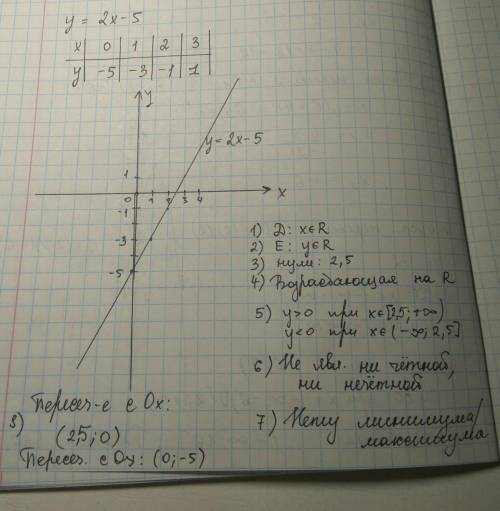 y = 2x-5
x | 0 | 1 | 2 | 3
y | -5 | -3 | -1 | 1
y
y = 2x-5
1
0 1 2 3 4
x
-1
-3
-5
1) Д: x∈R
2) E: y∈R
3) нули: 2,5
4) Возрастающая на R
5) y>0 при x∈[2,5;+∞)
y<0 при x∈(-∞; 2,5]
6) Не явл. ни чётной,
ни нечётной
7) Нету минимума/
максимума
8) Пересеч-е с Ox:
(2,5; 0)
Пересеч. с Oy: (0;-5)